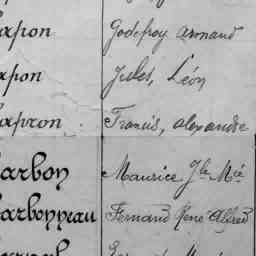 apon Godefroy Armand
apon Jules, Léon
apron Francis, alexandre
arbon Maurice Jh Mie
arbonneau Fernand René Alfred